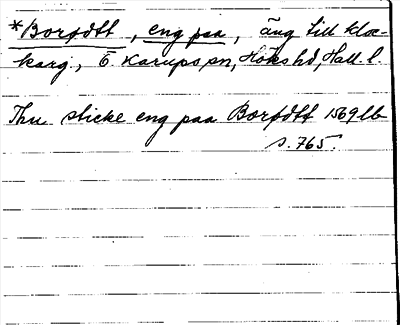 *Borødtt, eng paa, äng till kloc-
karg., Ö. Karups sn, Höks hd, Hall. l.
Thu sticke eng paa Borødtt 1569 lb
s. 765.